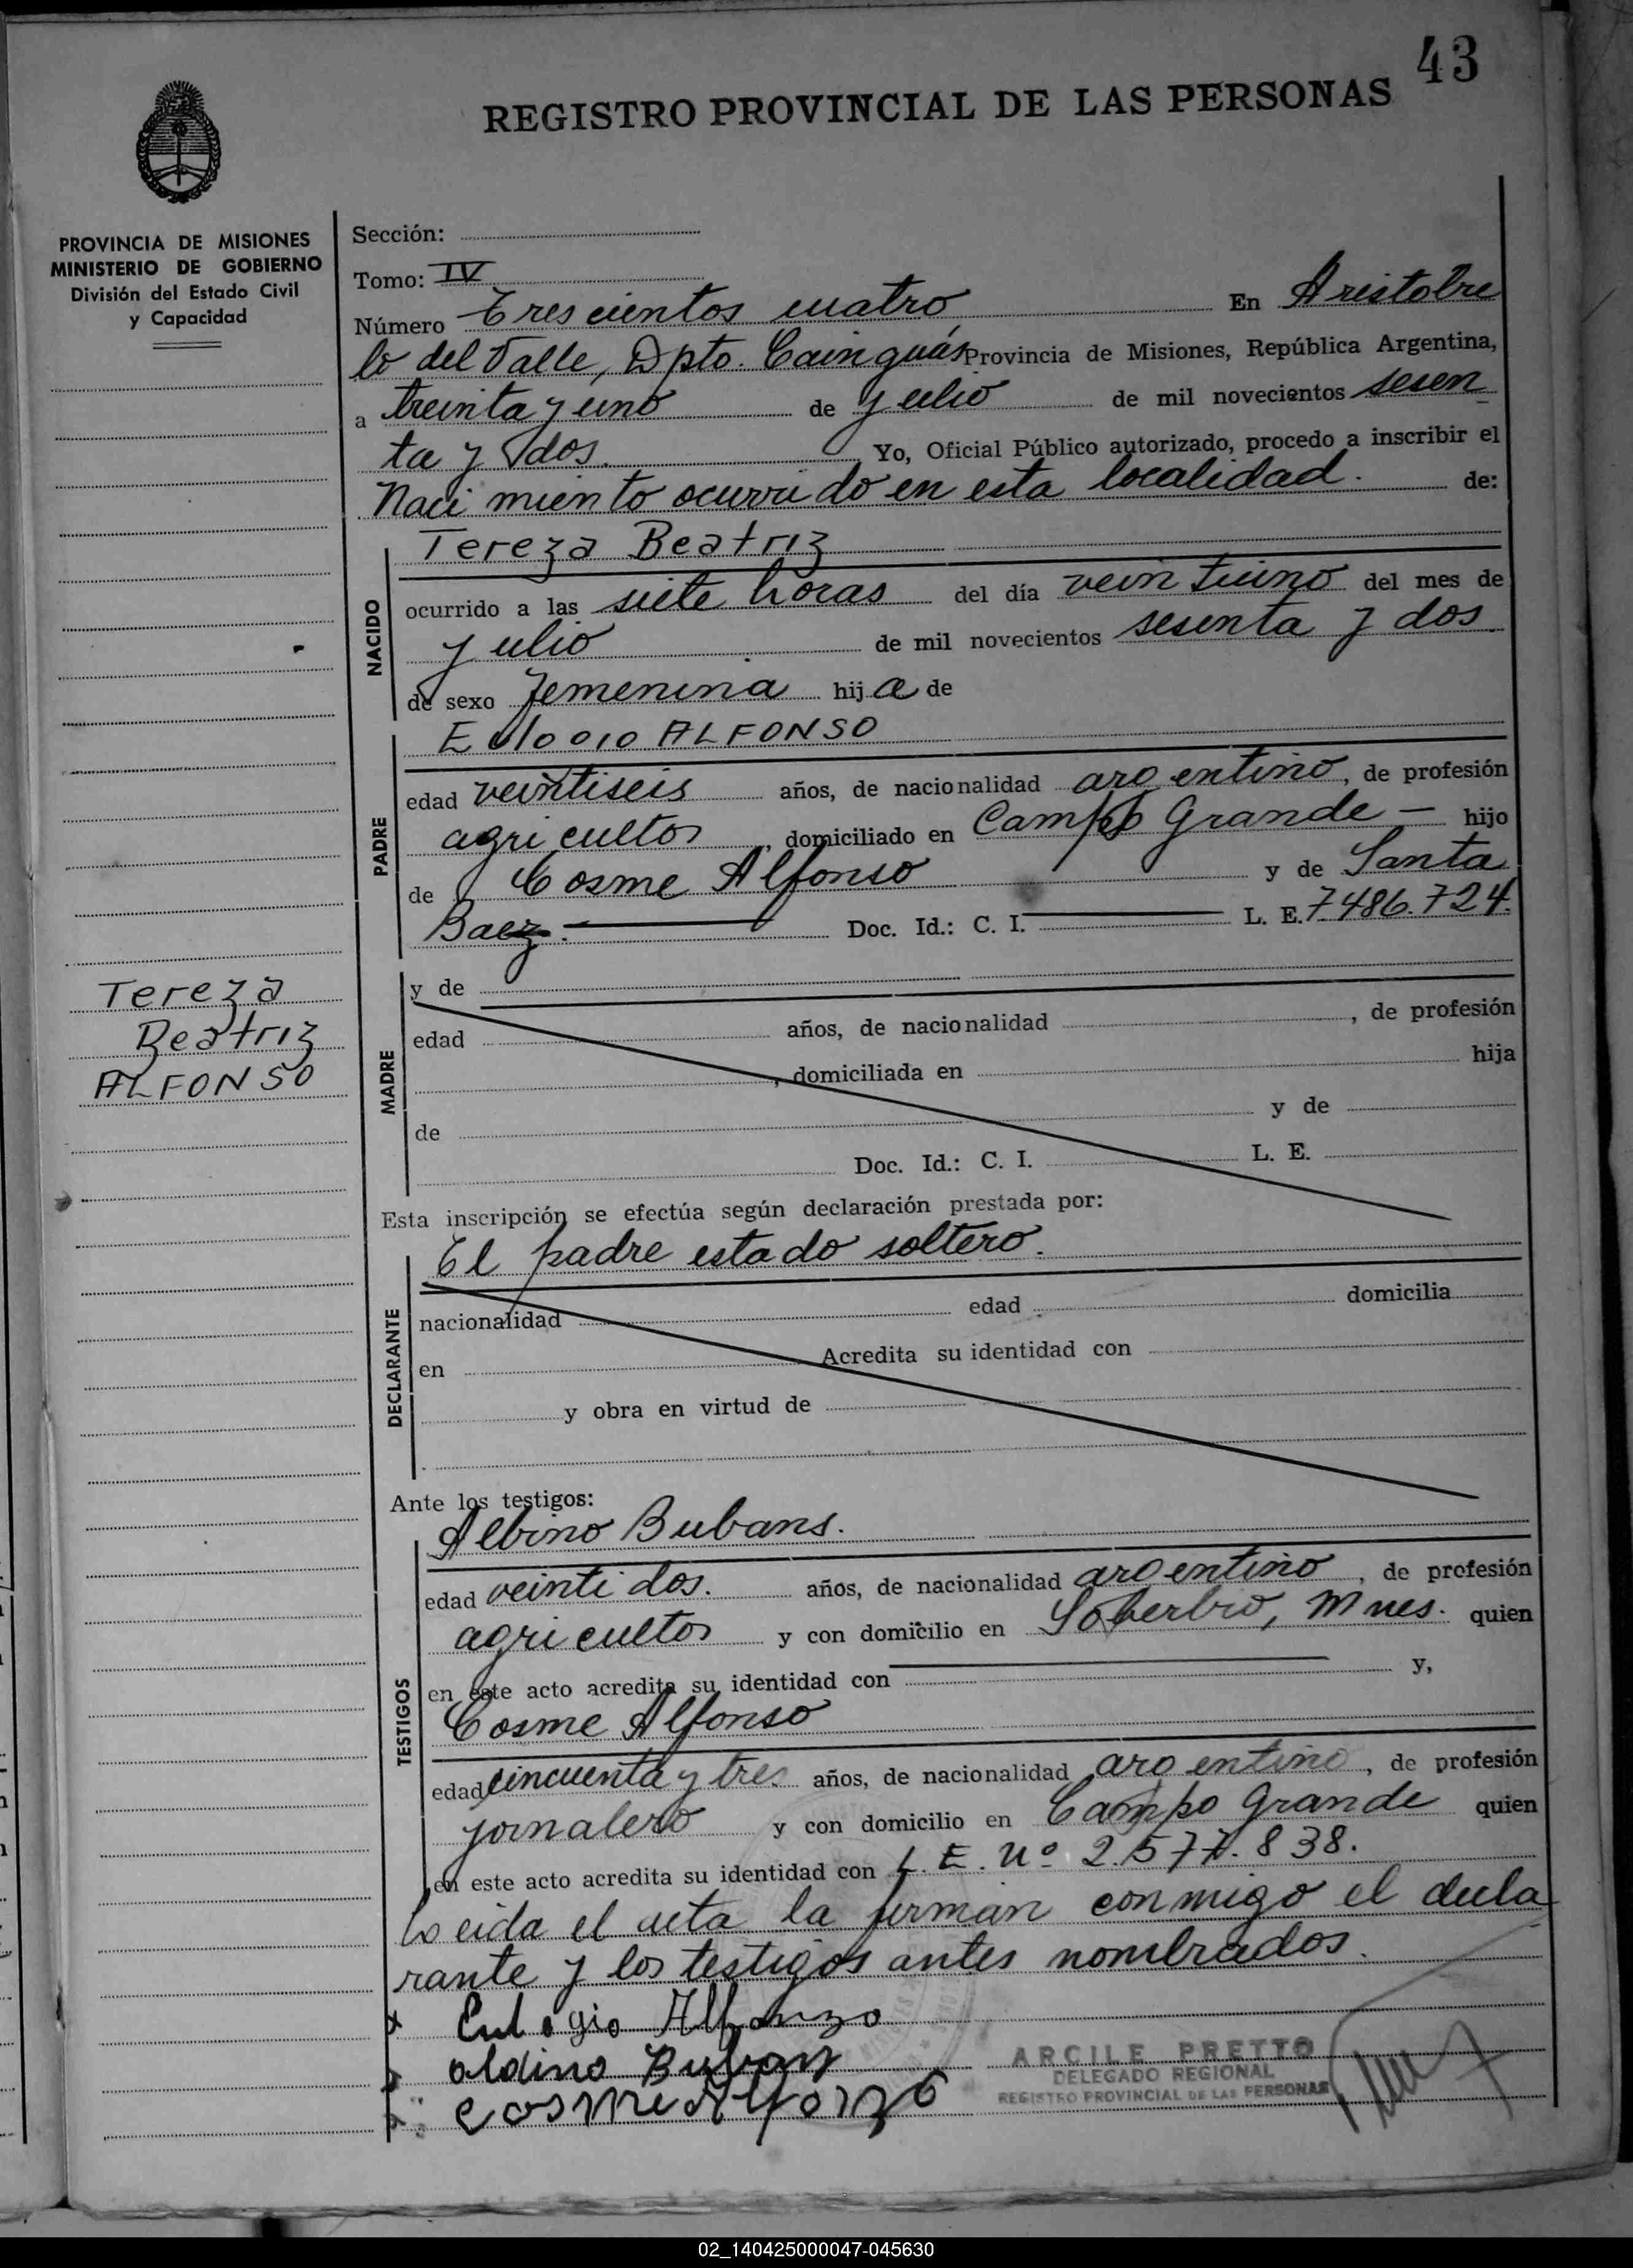 43
REGISTRO PROVINCIAL DE LAS PERSONAS
PROVINCIA DE MISIONES
MINISTERIO DE GOBIERNO
División del Estado Civil
y Capacidad
Sección:
Tomo: IV
Número Trescientos cuatro, En Aristobu
lo del Valle, Dpto. Cainguás Provincia de Misiones, República Argentina,
a treinta y uno de julio de mil novecientos sesen
ta y dos. Yo, Oficial Público autorizado, procedo a inscribir el
Nacimiento ocurrido en esta localidad. de:
NACIDO
Tereza Beatriz
ocurrido a las siete horas del día veintiuno del mes de
julio de mil novecientos sesenta y dos
de sexo femenina hija de
PADRE
Eulogio ALFONSO
edad veintiseis años, de nacionalidad argentino, de profesión
agricultor, domiciliado en Campo Grande — hijo
de Cosme Alfonso y de Santa
Baez. Doc. Id.: C. I. L. E. 7486.724.
Tereza
Beatriz
ALFONSO
MADRE
y de
edad años, de nacionalidad , de profesión
, domiciliada en hija
de y de
Doc. Id.: C. I. L. E.
Esta inscripción se efectúa según declaración prestada por:
DECLARANTE
El padre estado soltero.
nacionalidad edad domicilia
en Acredita su identidad con
y obra en virtud de
Ante los testigos:
TESTIGOS
Albino Bubans.
edad veintidos. años, de nacionalidad argentino, de profesión
agricultor y con domicilio en Soberbio, Mnes. quien
en este acto acredita su identidad con y,
Cosme Alfonso
edad cincuenta y tres años, de nacionalidad argentino, de profesión
jornalero y con domicilio en Campo Grande quien
en este acto acredita su identidad con L. E. Nº 2.577.838.
Leida el acta la firman conmigo el decla
rante y los testigos antes nombrados.
Eulogio Alfonzo
aldino Buban
cosme alfonzo
ARCILE PRETTO
DELEGADO REGIONAL
REGISTRO PROVINCIAL DE LAS PERSONAS
02_140425000047-045630